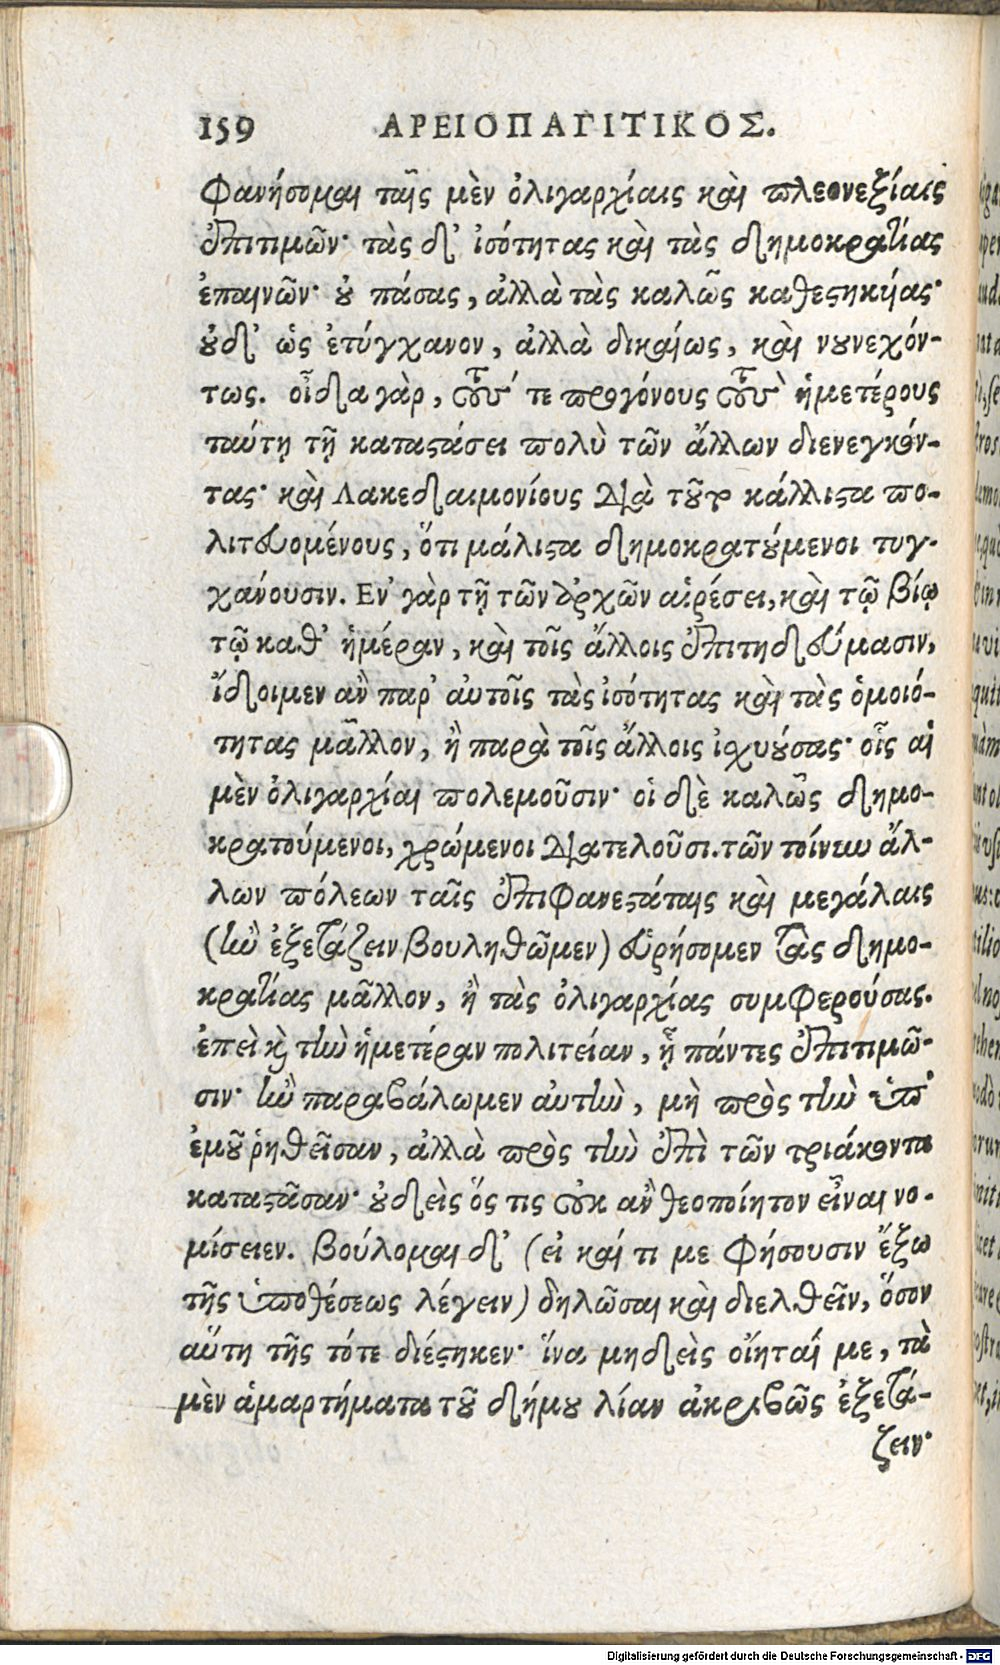 159 ΑΡΕΙΟΠΑΓΙΤΙΚΟΣ.
φανήσομαι ταῖς μὲν ὀλιγαρχίαις καὶ πλεονεξίαις
ἐπιτιμῶν· τὰς δ' ἰσότητας καὶ τὰς δημοκρατίας
ἐπαινῶν· οὐ πάσας, ἀλλὰ τὰς καλῶς καθεστηκυίας·
οὐδ' ὡς ἐτύγχανον, ἀλλὰ δικαίως, καὶ νουνεχόν-
τως. οἶδα γὰρ, τούς τε προγόνους τοὺς ἡμετέρους
ταύτῃ τῇ καταστάσει πολὺ τῶν ἄλλων διενεγκόν-
τας· καὶ Λακεδαιμονίους διὰ τοῦτο κάλλιστα πο-
λιτευομένους, ὅτι μάλιστα δημοκρατούμενοι τυγ-
χάνουσιν. Ἐν γὰρ τῇ τῶν ἀρχῶν αἱρέσει, καὶ τῷ βίῳ
τῷ καθ' ἡμέραν, καὶ τοῖς ἄλλοις ἐπιτηδεύμασιν,
ἴδοιμεν ἂν παρ' αὐτοῖς τὰς ἰσότητας καὶ τὰς ὁμοιό-
τητας μᾶλλον, ἢ παρὰ τοῖς ἄλλοις ἰσχυούσας· οἷς αἱ
μὲν ὀλιγαρχίαι πολεμοῦσιν· οἱ δὲ καλῶς δημο-
κρατούμενοι, χρώμενοι διατελοῦσι. τῶν τοίνυν ἄλ-
λων πόλεων ταῖς ἐπιφανεστάταις καὶ μεγάλαις
(ἢν ἐξετάζειν βουληθῶμεν) εὑρήσομεν τὰς δημο-
κρατίας μᾶλλον, ἢ τὰς ὀλιγαρχίας συμφερούσας.
ἐπεὶ καὶ τὴν ἡμετέραν πολιτείαν, ᾗ πάντες ἐπιτιμῶ-
σιν· ἢν παραβάλωμεν αὐτὴν, μὴ πρὸς τὴν ὑπ'
ἐμοῦ ῥηθεῖσαν, ἀλλὰ πρὸς τὴν ἐπὶ τῶν τριάκοντα
καταστᾶσαν· οὐδεὶς ὅς τις οὐκ ἂν θεοποίητον εἶναι νο-
μίσειεν. βούλομαι δ' (εἰ καί τι με φήσουσιν ἔξω
τῆς ὑποθέσεως λέγειν) δηλῶσαι καὶ διελθεῖν, ὅσον
αὕτη τῆς τότε διέστηκεν· ἵνα μηδεὶς οἴηταί με, τὰ
μὲν ἁμαρτήματα τοῦ δήμου λίαν ἀκριβῶς ἐξετά-
ζειν·
Digitalisierung gefördert durch die Deutsche Forschungsgemeinschaft - DFG